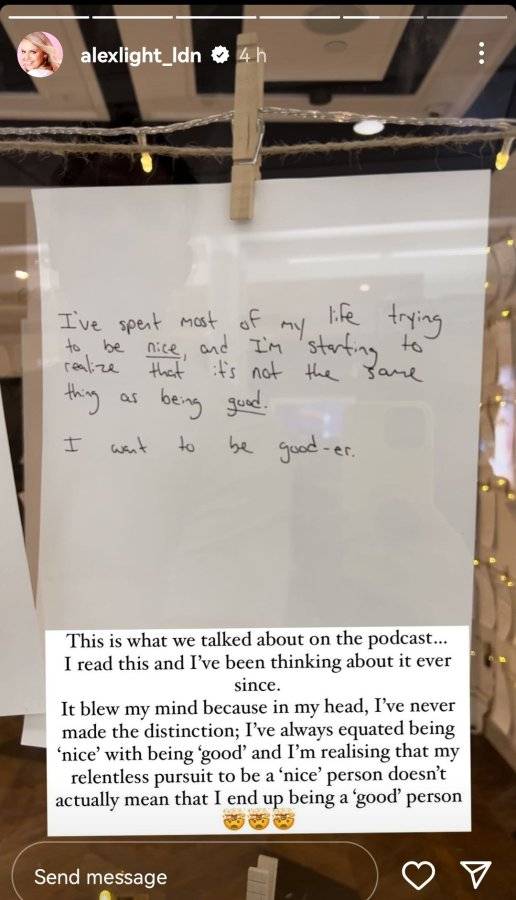 alexlight_ldn 4 h
I've spent most of my life trying
to be nice, and I'm starting to
realize that it's not the same
thing as being good.
I want to be good-er.
This is what we talked about on the podcast...
I read this and I've been thinking about it ever
since.
It blew my mind because in my head, I've never
made the distinction; I've always equated being
‘nice’ with being ‘good’ and I'm realising that my
relentless pursuit to be a ‘nice’ person doesn't
actually mean that I end up being a ‘good’ person
🤯🤯🤯
Send message